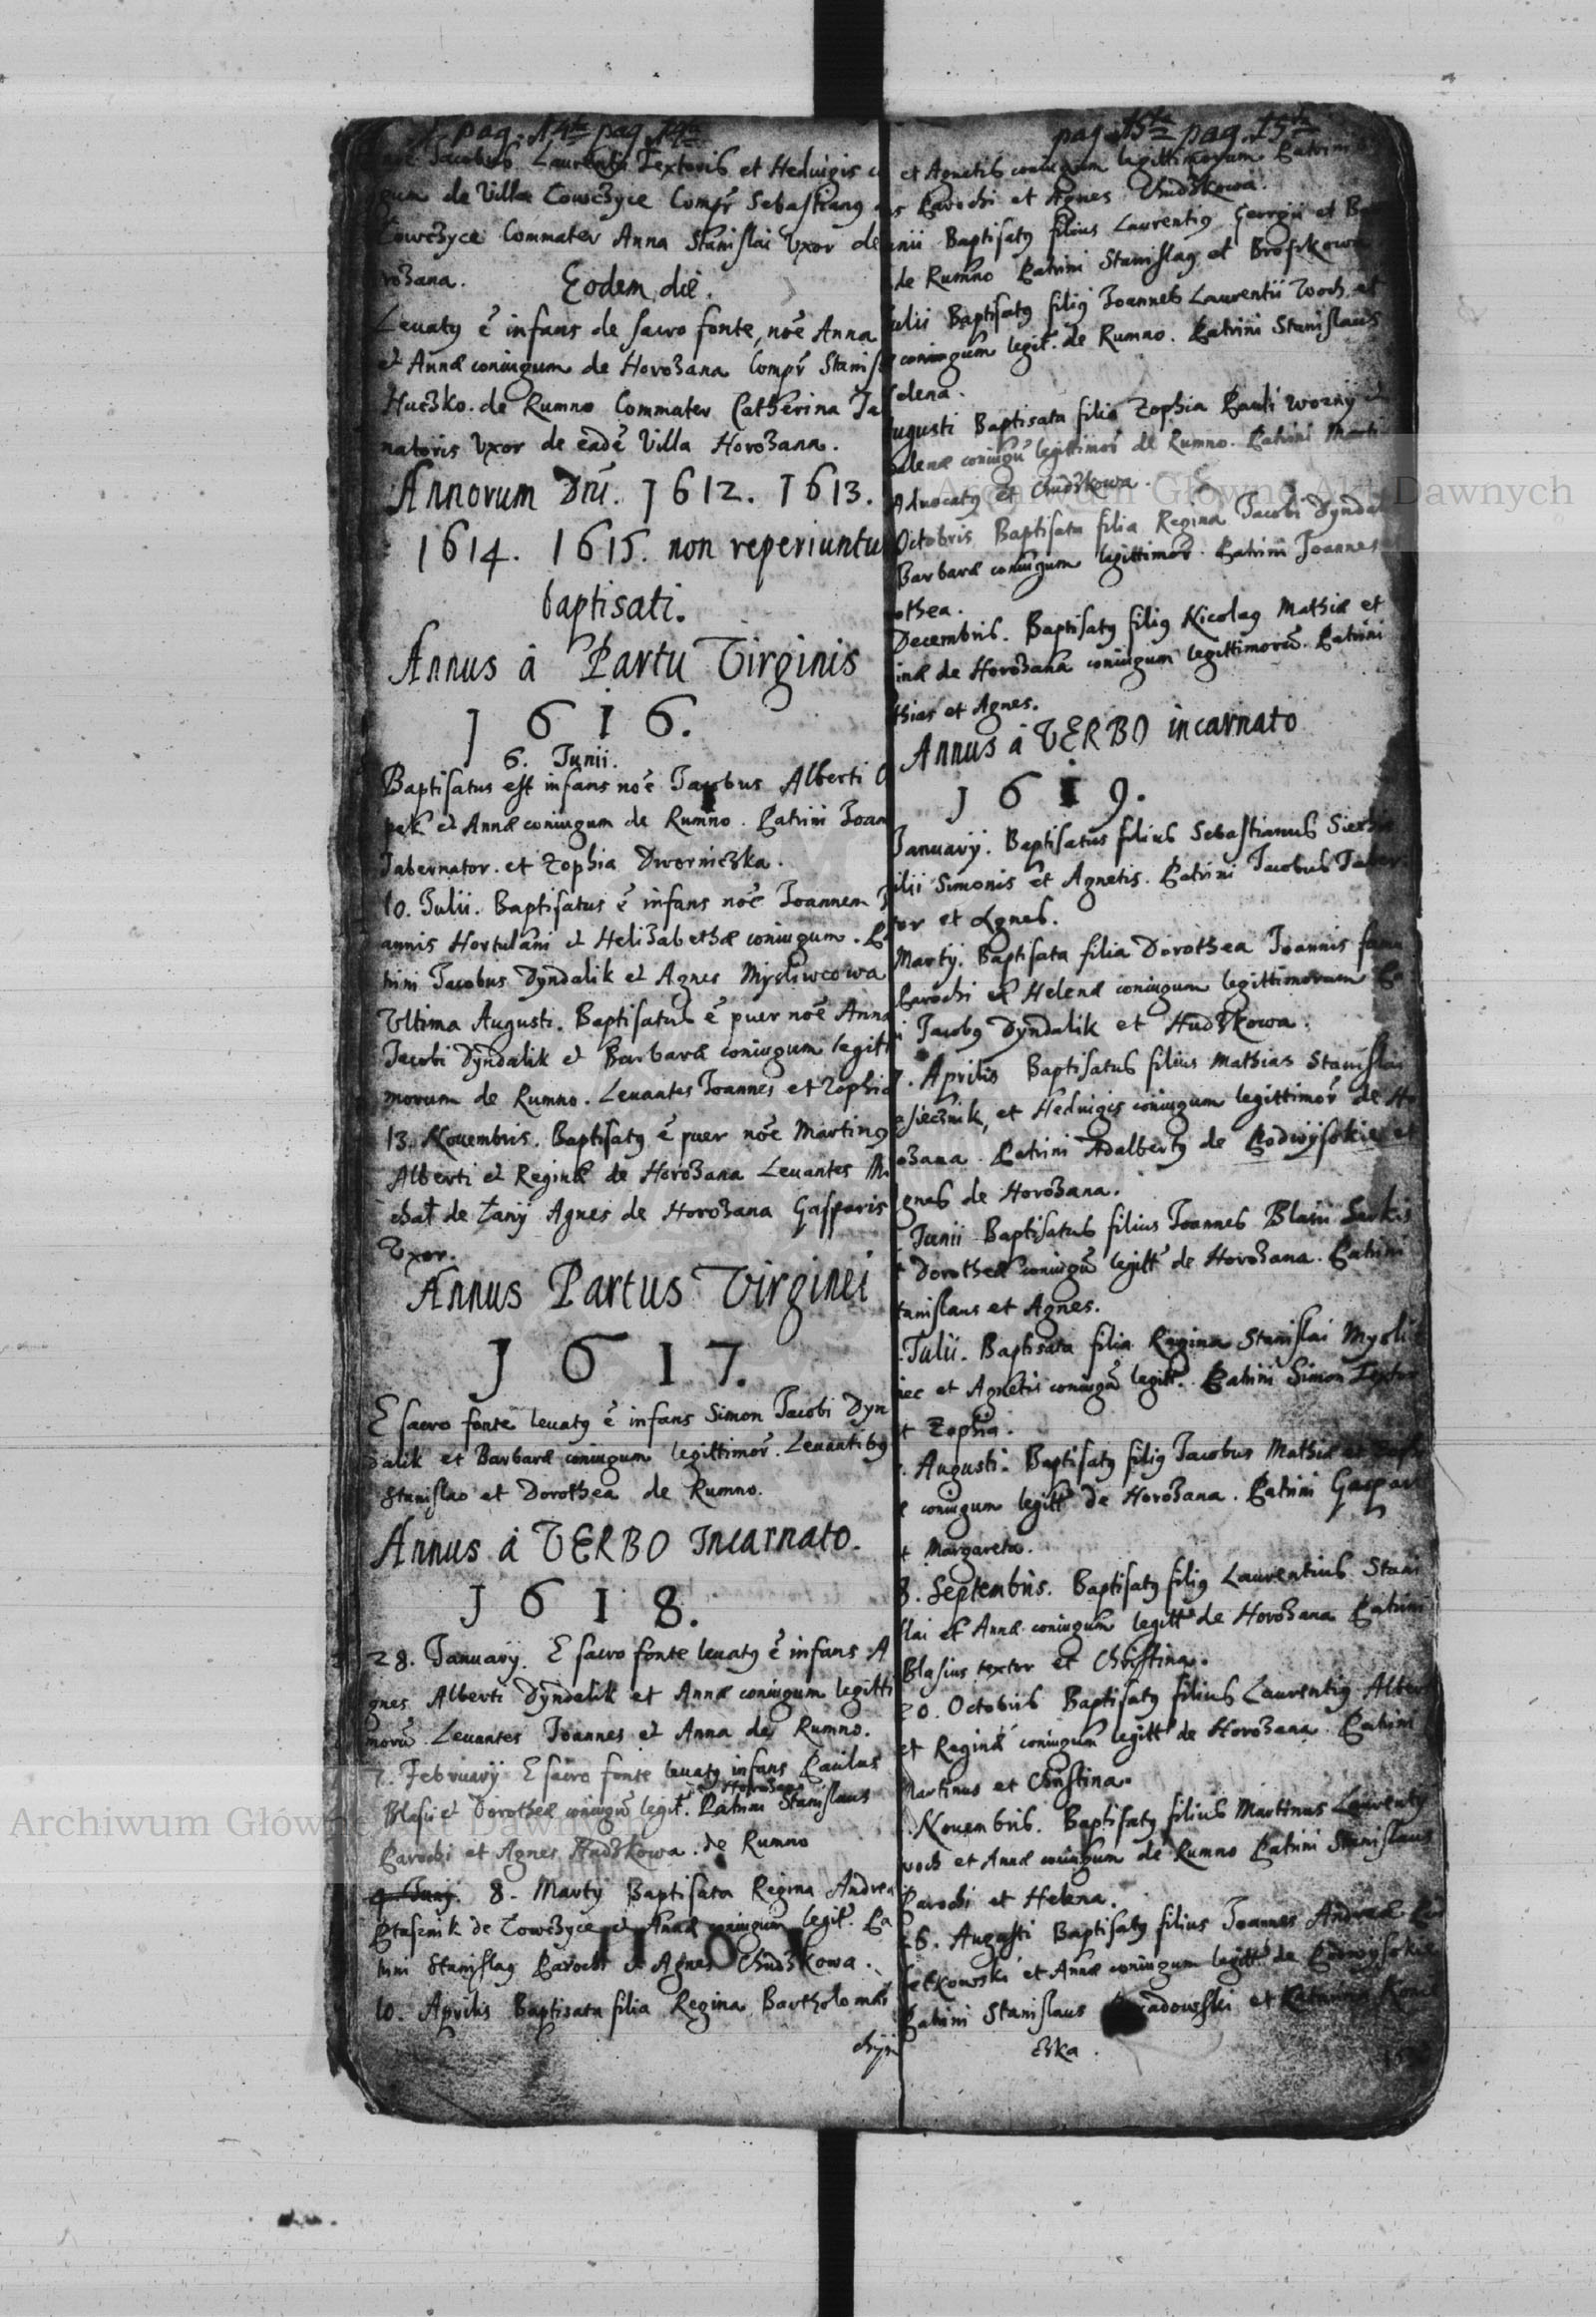 pag. 14ta pag. 14ta
Jacobus Laurentii Textoris et Heduigis
gum de Villa Towczyce Compr Sebastianꝰ
Towczyce Commater Anna Stanislai Vxor de
rozana.
Eodem die.
Leuatꝰ ẽ infans de sacro fonte, noẽ Anna
et Annæ coniugum de Horozana Compr Stanis
Huczko. de Rumno Commater Catherina Ta
natoris Vxor de eadẽ Villa Horozana.
Annorum Dni. 1612. 1613.
1614. 1615. non reperiuntu
baptisati.
Annus à Partu Virginis
1616.
6. Junii.
Baptisatus est infans noẽ Jacobus Alberti
pek et Annæ coniugum de Rumno. Patrini Joan
Tabernator. et Zophia Dworniczka.
10. Julii. Baptisatus ẽ infans noẽ Joannem J
annis Hortulani et Helizabethæ coniugum. P
trini Jacobus Dyndalik et Agnes Mysliwcowa
Vltima Augusti. Baptisatus ẽ puer noẽ Anna
Jacobi Dyndalik et Barbaræ coniugum legitt
morum de Rumno. Leuantes Joannes et Zophia
13. Nouembris. Baptisatꝰ ẽ puer noẽ Martinꝰ
Alberti et Reginæ de Horozana Leuantes Mi
chał de Łany Agnes de Horozana Gasparis
Vxor.
Annus Partus Virginei
1617.
E sacro fonte leuatꝰ ẽ infans Simon Jacobi Dyn
dalik et Barbaræ coniugum legittimoř. Leuantibꝰ
Stanislao et Dorothea de Rumno.
Annus à VERBO Incarnato.
1618.
28. January. E sacro fonte leuatꝰ ẽ infans A
gnes Alberti Dyndalik et Annæ coniugum legitti
morũ. Leuantes Joannes et Anna de Rumno.
7. February E sacro fonte leuatꝰ infans Paulus
de Horozana
Blasii et Dorotheæ coniugũ legit. Patrini Stanislaus
Parochi et Agnes Hudzkowa. de Rumno
9 Juny. 8. Marty Baptisata Regina Andreæ
Ptasznik de Towczyce et Annæ coniugum legit. Pa
trini Stanislaꝰ Parochi et Agnes Chudzkowa.
10. Aprilis Baptisata filia Regina Bartholomæi
chyn
pag. 15ta pag. 15ta
et Agnetis coniugum legittimorum Patrini
Parochi et Agnes Chudzkowa.
nii Baptisatꝰ filius Laurentiꝰ Georgii et
de Rumno Patrini Stanislaꝰ et Broszkowa
ulii Baptisatꝰ filiꝰ Joannes Laurentii Woch et
coniugum legit. de Rumno. Patrini Stanislaus
elena.
ugusti Baptisata filia Zophia Pauli Wozny et
alenæ coniugũ legittimoř de Rumno. Patrini Marti
Aduocatꝰ et Chudzkowa.
Octobris Baptisata filia Regina Jacobi Dyndal
Barbaræ coniugum legittimoř. Patrini Joannes
othea.
Decembris. Baptisatꝰ filiꝰ Nicolaꝰ Mathiæ et
inæ de Horozana coniugum legittimorũ. Patrini
thias et Agnes.
Annus à VERBO incarnato
1619.
January. Baptisatus filius Sebastianus
ilii Simonis et Agnetis. Patrini Jacobus Taber
tor et Agnes.
Marty. Baptisata filia Dorothea Joannis famu
Parochi et Helenæ coniugum legittimorum Pa
i Jacobꝰ Dyndalik et Hudzkowa.
Aprilis Baptisatus filius Mathias Stanislai
siecznik, et Heduigis coniugum legittimoř de Ho
ozana. Patrini Adalbertꝰ de Podwysokie et
gnes de Horozana.
Junii Baptisatus filius Joannes Blasii
Dorotheæ coniugũ legitt de Horozana. Patrini
tanislaus et Agnes.
Julii. Baptisata filia Regina Stanislai Mysli
iec et Agnetis coniugũ legitt. Patrini Simon Textor
t Zophia.
Augusti. Baptisatꝰ filiꝰ Jacobus Mathiæ et
æ coniugum legitt de Horozana. Patrini Gaspar
t Margareta.
8. Septembris. Baptisatꝰ filiꝰ Laurentius Stani
slai et Annæ coniugum legitt de Horozana Patrini
Blasius textor et Christina.
20. Octobris Baptisatꝰ filius Laurentiꝰ Albert
et Reginæ coniugum legitt de Horozana. Patrini
Martinus et Christina.
Nouembris. Baptisatꝰ filius Martinus Laurenty
woch et Annæ coniugum de Rumno Patrini Stanislaus
Parochi et Helena.
26. Augusti Baptisatꝰ filius Joannes Andreæ
setkowski et Annæ coniugum legitt de Podwysokie
Patrini Stanislaus adowski et Katarina
czka.
Archiwum Główne Akt Dawnych
Archiwum Główne Akt Dawnych